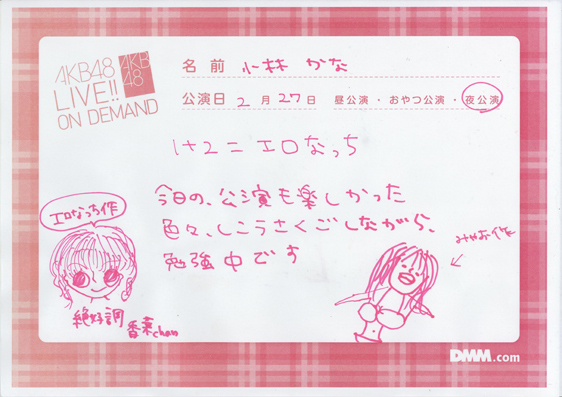 AKB48
LIVE!!
ON DEMAND
AKB
48
名前 小林 かな
公演日 2月27日 昼公演・おやつ公演・夜公演
1+2=エロなっち
今日の、公演も楽しかった
色々、しこうさくごしながら、
勉強中です
エロなっち作
みゃお作
絶好調
香菜chan
DMM.com